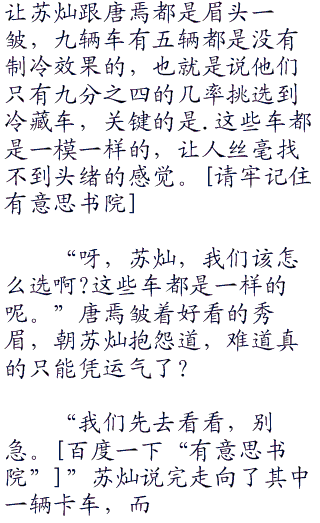 让苏灿跟唐焉都是眉头一
皱，九辆车有五辆都是没有
制冷效果的，也就是说他们
只有九分之四的几率挑选到
冷藏车，关键的是.这些车都
是一模一样的，让人丝毫找
不到头绪的感觉。[请牢记住
有意思书院]
“呀，苏灿，我们该怎
么选啊?这些车都是一样的
呢。”唐焉皱着好看的秀
眉，朝苏灿抱怨道，难道真
的只能凭运气了？
“我们先去看看，别
急。[百度一下“有意思书
院”]”苏灿说完走向了其中
一辆卡车，而